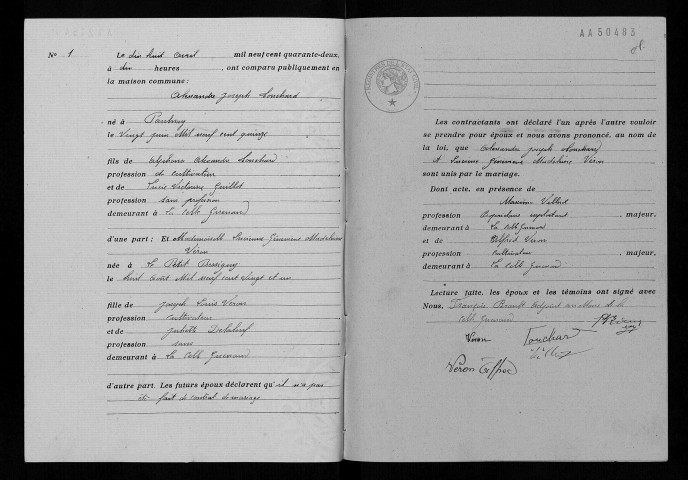 No 1
Le dix huit avril mil neuf cent quarante-deux,
à dix heures, ont comparu publiquement en
la maison commune :
Alexandre Joseph
né à
le Vingt juin Mil neuf cent quinze
fils de Alphonse Alexandre
profession de cultivateur
et de Lucie Victorine Guillot
profession sans profession
demeurant à La Celle Guenand
d'une part : Et Mademoiselle Lucienne Geneviève Madeleine
Véron
née à Le Petit Pressigny
le huit août Mil neuf cent vingt et un
fille de Joseph Louis Véron
profession cultivateur
et de Juliette
profession sans
demeurant à La Celle Guenand
d'autre part. Les futurs époux déclarent qu'il n'a pas
été fait de contrat de mariage
AA50463
Les contractants ont déclaré l'un après l'autre vouloir
se prendre pour époux et nous avons prononcé, au nom de
la loi, que Alexandre Joseph
et Lucienne Geneviève Madeleine Véron
sont unis par le mariage.
Dont acte, en présence de
Maxime
profession exploitant, majeur,
demeurant à La Celle Guenand
et de Alfred Véron
profession cultivateur, majeur,
demeurant à La Celle Guenand
Lecture faite, les époux et les témoins ont signé avec
Nous, François adjoint au Maire de la
Celle Guenand
Véron
Véron